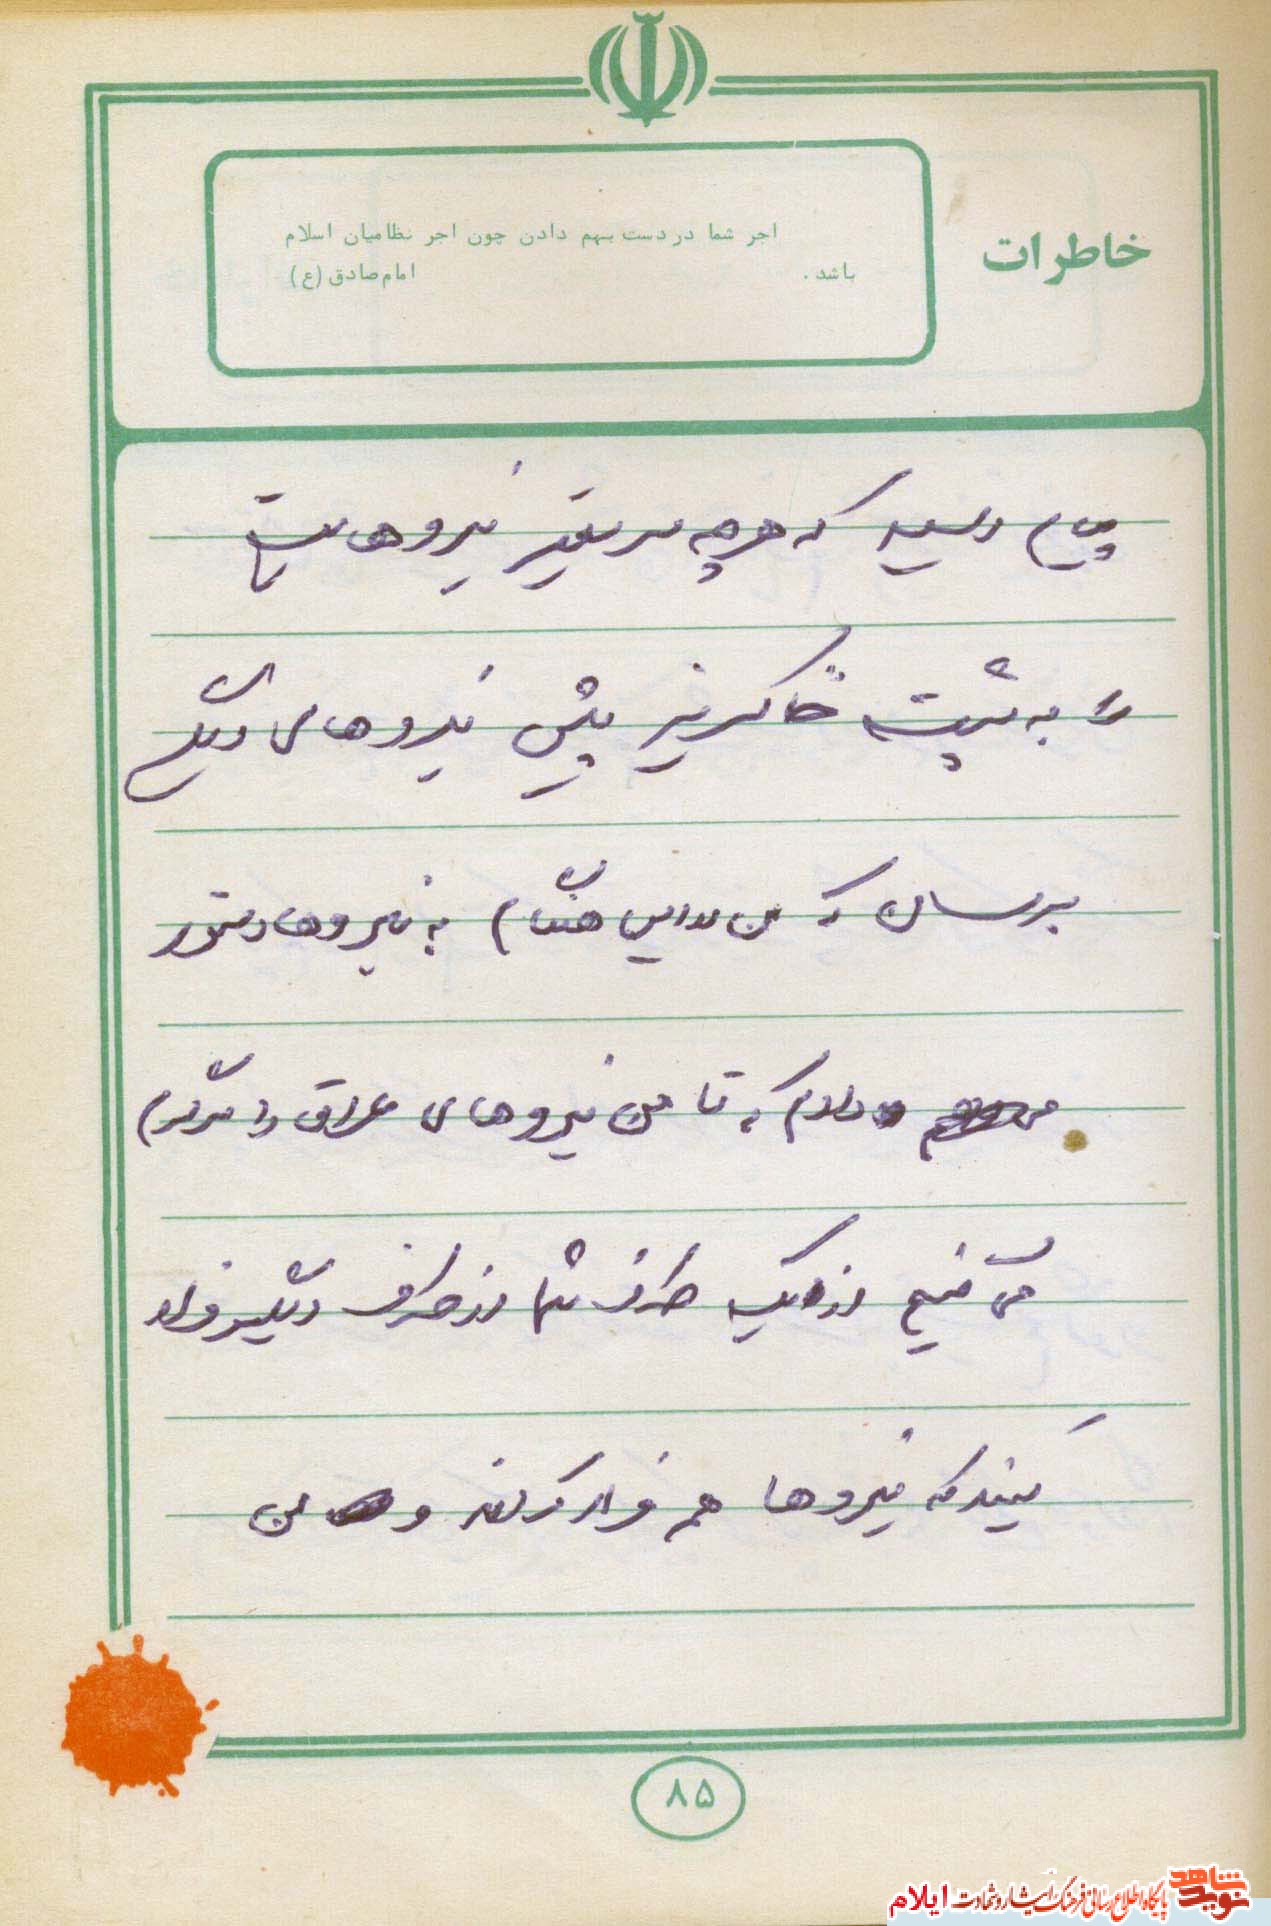 خاطرات
اجر شما در دست بهم دادن چون اجر نظامیان اسلام
باشد. امام صادق (ع)
پیام رسید که هرچه سریعتر نیروهایت
را به پشت خاکریز پیش نیروهای دیگر
برسان که من در این هنگام به نیروها دستور
دادم که تا من نیروهای عراق را
از یک طرف شما از طرف دیگر فرار
کنید که نیروها هم فرار کردند و من
۸۵
نوید شاهد
پایگاه اطلاع رسانی فرهنگ ایثار و شهادت ایلام